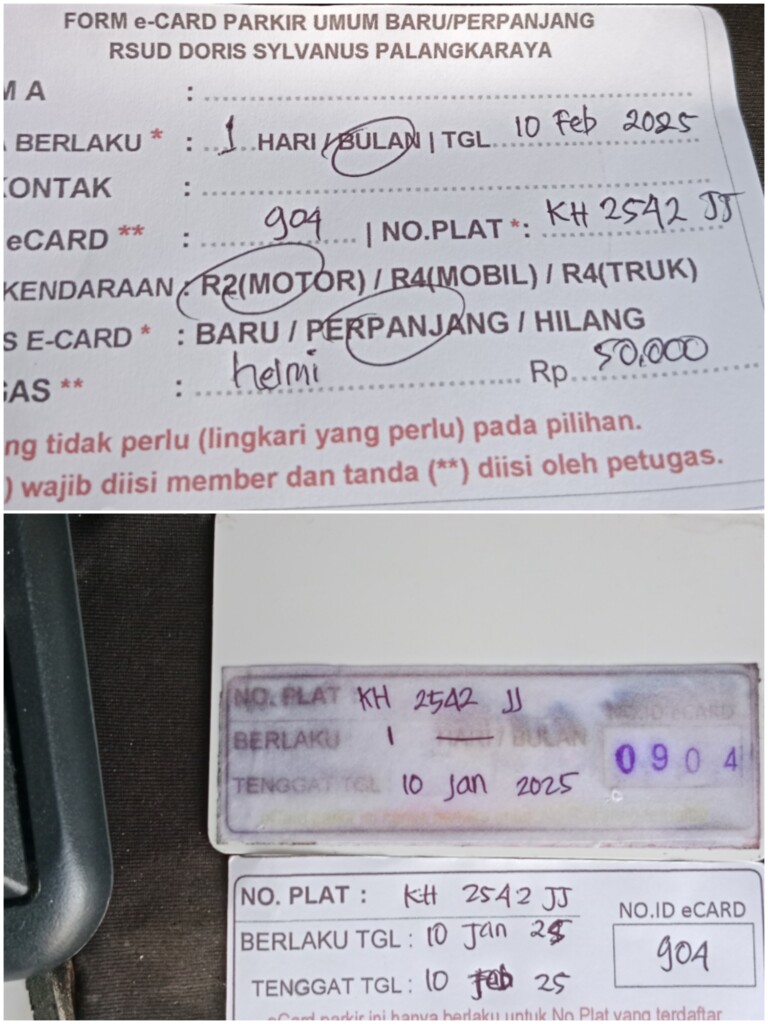 FORM e-CARD PARKIR UMUM BARU/PERPANJANG
RSUD DORIS SYLVANUS PALANGKARAYA
M A :
BERLAKU * : 1 HARI / BULAN | TGL. 10 Feb 2025
KONTAK :
eCARD ** : 904 | NO.PLAT *: KH 2542 JJ
KENDARAAN : R2(MOTOR) / R4(MOBIL) / R4(TRUK)
S E-CARD * : BARU / PERPANJANG / HILANG
GAS ** : helmi Rp. 50.000
ng tidak perlu (lingkari yang perlu) pada pilihan.
) wajib diisi member dan tanda (**) diisi oleh petugas.
NO. PLAT KH 2542 JJ
NO.ID eCARD
BERLAKU 1 HARI / BULAN
0904
TENGGAT TGL 10 Jan 2025
NO. PLAT : KH 2542 JJ
NO.ID eCARD
BERLAKU TGL : 10 Jan 25
904
TENGGAT TGL : 10 Feb 25
eCard parkir ini hanya berlaku untuk No Plat yang terdaftar